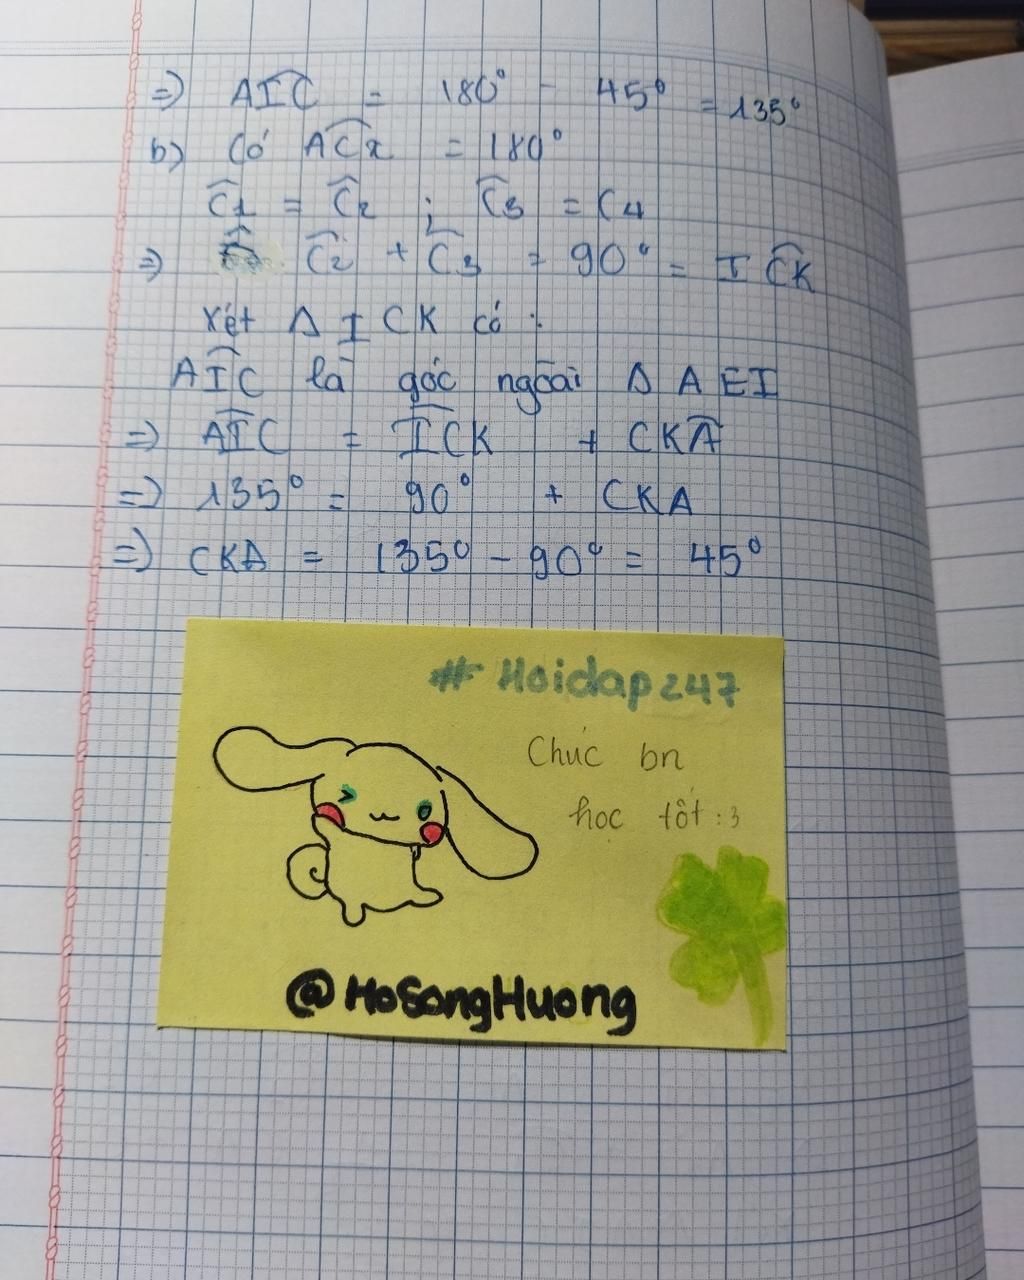 => AIC = 180° - 45° = 135°
b) Có ACx = 180°
C1 = C2 ; C3 = C4
=> C2 + C3 = 90° = ICK
xét Δ ICK có :
AIC là góc ngoài Δ AEI
=> AIC = ICK + CKA
=> 135° = 90° + CKA
=> CKA = 135° - 90° = 45°
# Hoidap247
Chúc bn
học tốt :3
@HoSongHuong